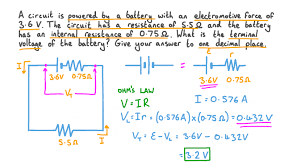 A circuit is powered by a battery with an electromotive force of
3.6 V. The circuit has a resistance of 5.5 Ω and the battery
has an internal resistance of 0.75 Ω. What is the terminal
voltage of the battery? Give your answer to one decimal place.
I
3.6V 0.75Ω
V_T
5.5Ω
I
=
ε r
3.6V 0.75Ω
OHM'S LAW
V = IR
I = 0.576 A
V_L = Ir = (0.576A) × (0.75Ω) = 0.432 V
V_T = ε - V_L = 3.6V - 0.432V
= 3.2 V